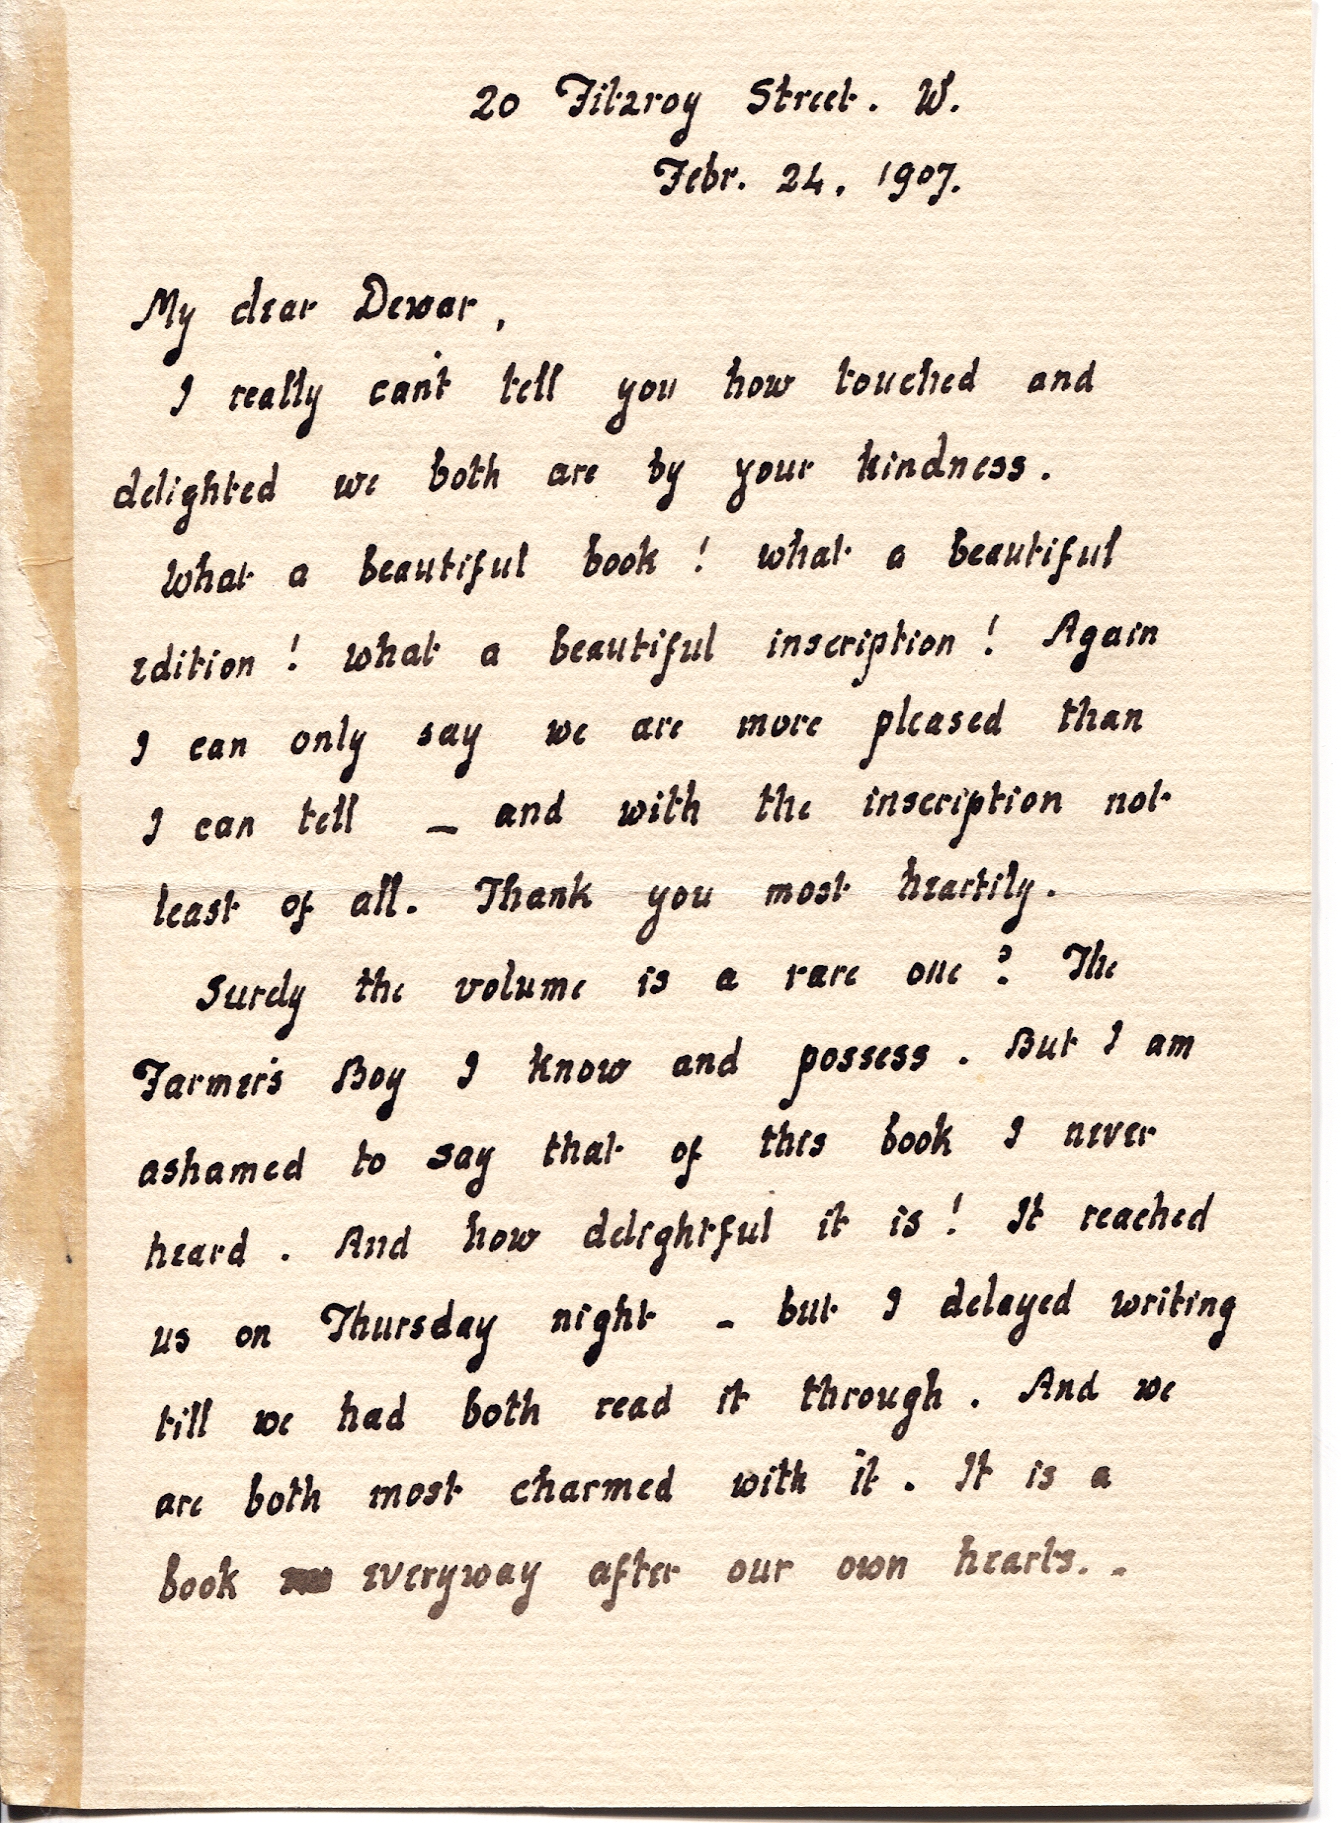 20 Fitzroy Street. W.
Febr. 24. 1907.
My dear Dewar,
I really can't tell you how touched and
delighted we both are by your kindness.
What a beautiful book! what a beautiful
edition! what a beautiful inscription! Again
I can only say we are more pleased than
I can tell — and with the inscription not
least of all. Thank you most heartily.
Surely the volume is a rare one? The
Farmer's Boy I know and possess. But I am
ashamed to say that of this book I never
heard. And how delightful it is! It reached
us on Thursday night – but I delayed writing
till we had both read it through. And we
are both most charmed with it. It is a
book everyway after our own hearts. -